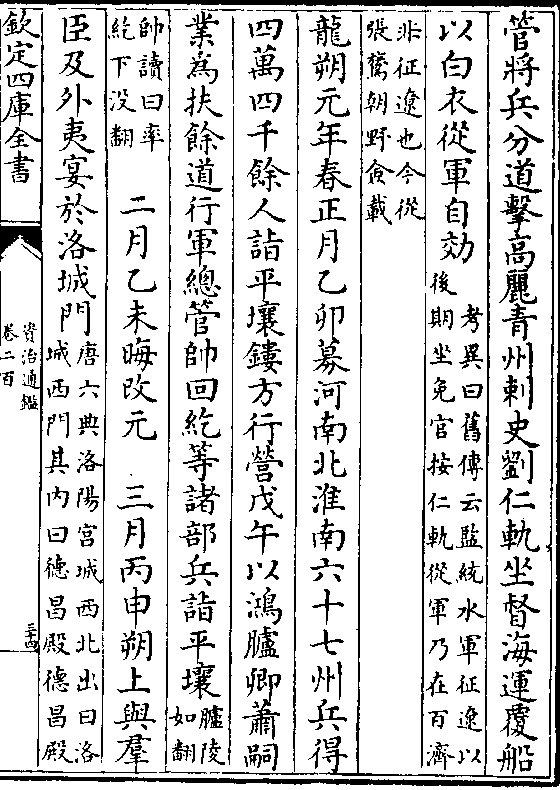 管將兵分道擊高麗青州刺史劉仁軌坐督海運覆船
以白衣從軍自効
考異曰舊傳云監統水軍征遼以
後期坐免官按仁軌從軍乃在百濟
非征遼也今從
張鷟朝野僉載
龍朔元年春正月乙卯募河南北淮南六十七州兵得
四萬四千餘人詣平壤鏤方行營戊午以鴻臚卿蕭嗣
業為扶餘道行軍總管帥回紇等諸部兵詣平壤
臚陵
如翻
帥讀曰率
紇下没翻
二月乙未晦改元 三月丙申朔上與羣
臣及外夷宴於洛城門
唐六典洛陽宮城西北出曰洛
城西門其內曰德昌殿德昌殿
欽定四庫全書
資治通鑑
卷二百
三十四